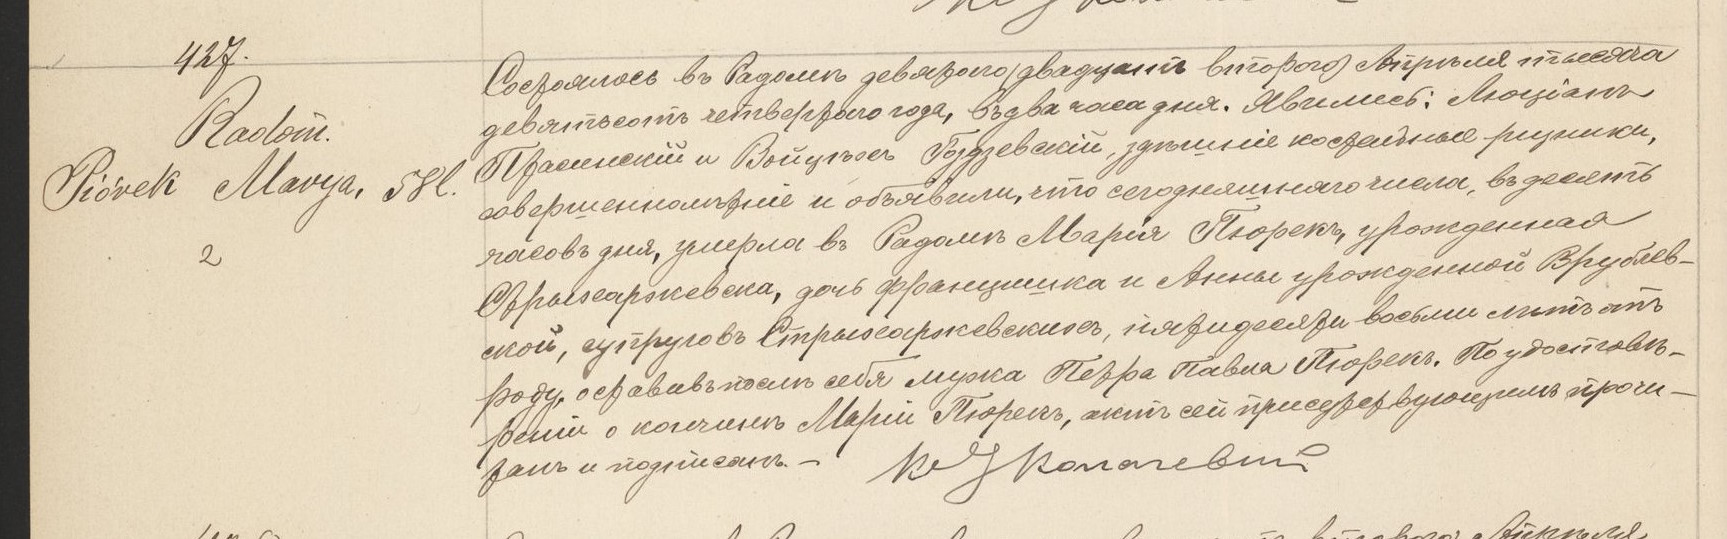 427.
Radom.
Piórek Marya, 58 l.
2
Состоялось въ Радомѣ девятаго (двадцать втораго) Апрѣля тысяча
девятьсотъ четвертаго года, въ два часа дня. Явились: Люціанъ
Прасинскій и Войцѣхъ Гоздзевскій, здѣшніе костельные рцники,
совершеннолѣтніе и объявили, что сегодняшняго числа, въ десять
часовъ дня, умерла въ Радомѣ Марія Пюрекъ, урожденная
Стрыхаржевска, дочь Францишка и Анны урожденной Врублев-
ской, супруговъ Стрыхаржевскихъ, пятидесяти восьми лѣтъ отъ
роду, оставивъ послѣ себя мужа Петра Павла Пюрекъ. По удостовѣ-
реніи о кончинѣ Маріи Пюрекъ, актъ сей присутствующимъ прочи-
танъ и подписанъ. –